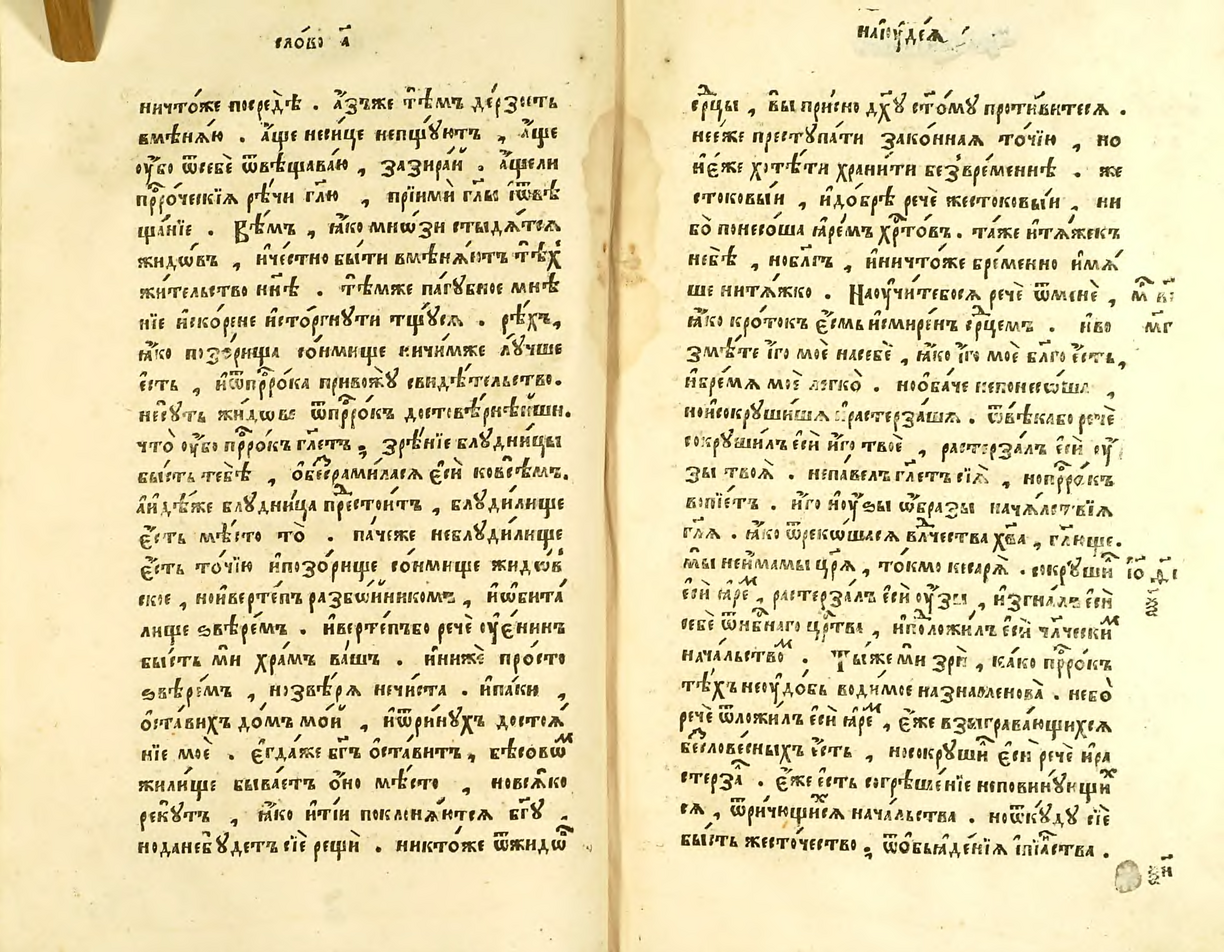 сло́во а҃
ничто́же посредѣ̀ . а҆́зъже тѣ́мъ де́рзость
вмѣнѧ́ю . а҆́ще несице непщꙋ́ютъ , а҆́ще
ᲂу҆́бо ѿсебѐ ѿвѣщава́ю , зазира́й . а҆́щели
прⷪ҇ро́ческїѧ рѣ́чи гл҃ю , прїимѝ гл҃ы и҆ѿвѣ
ща́нїе . Вѣ́мъ , ꙗ҆́ко мнѡ́зи стыдѧ́тсѧ
жидѡ́въ , и҆че́стно бы́ти вмѣнѧ́ютъ тѣ́хъ
жи́тельство нн҃ѣ . тѣ́мже па́гꙋбное мнѣ́
нїе и҆скорене и҆сто́ргнꙋти тщꙋ́сѧ . рѣ́хъ,
ꙗ҆́ко позо́рища со́нмище ничи́мже лꙋ́чше
є҆́сть , и҆ѿпрⷪ҇ро́ка привожꙋ̀ свидѣ́тельство.
несꙋ́ть жидѡве ѿпрⷪ҇ро́къ достовѣ́рнѣйши.
что̀ ᲂу҆́бо прⷪ҇ро́къ гл҃етъ ; зрѣ́нїе блꙋдни́цы
бы́сть тебѣ̀ , ѡ҆безсрами́ласѧ є҆сѝ ковсѣ́мъ.
а҆и҆дѣ́же блꙋдни́ца престои́тъ , блꙋди́лище
є҆́сть мѣ́сто то̀ . па́чеже неблꙋди́лище
є҆́сть то́чїю и҆позо́рище со́нмище жидо́в
ское , нои҆верте́пъ разбо́йникомъ , и҆ѡ҆бита́
лище ѕвѣре́мъ . и҆верте́пъбо рече ᲂу҆є҆ни́нъ
бы́сть мѝ хра́мъ ва́шъ . и҆нижѐ про́сто
ѕвѣре́мъ , нозвѣ́рѧ нечи́ста . и҆па́ки ,
ѡ҆ста́вихъ до́мъ мо́й , и҆ѿри́нꙋхъ достоѧ́
нїе моѐ . є҆гда́же бг҃ъ ѡ҆ста́витъ , бѣсо́вѡм
жи́лище быва́етъ ѻ҆́но мѣ́сто , новсѧ́ко
рекꙋ́тъ , ꙗ҆́ко и҆ті́и поклонѧ́ютсѧ бг҃ꙋ .
нодане бꙋ́детъ сїѐ рещѝ . никто́же ѿжидѡ́въ
наїꙋде́ѧ
срⷣцы , вы̀ при́сно дх҃ꙋ ст҃о́мꙋ проти́витесѧ .
нее́же престꙋпа́ти зако́ннаѧ то́чїю , но
и҆є҆́же хотѣ́ти храни́ти без̾вре́меннѣ . же
стоковы́и , и҆до́брѣ речѐ жестоковы́и , ни
бо̀ понесо́ша ꙗ҆ре́мъ хрⷭ҇то́въ . та́же и҆тѧ́жекъ
небѣ̀ , нобл҃гъ , и҆ничто́же бре́менно и҆мѧ́
ше нитѧ́жко . Наᲂу҆чи́тебосѧ речѐ ѿменѐ ,
ꙗ҆́ко кро́токъ є҆́смь и҆смире́нъ срⷣцемъ . и҆во
змѣ́те и҆́го моѐ насебѐ , ꙗ҆́ко и҆́го моѐ бл҃го є҆́сть,
и҆бре́мѧ моѐ легко̀ . нооба́че непонесо́ша ,
нои҆сокрꙋши́ша и҆растерза́ша . ѿвѣ́кабо речѐ
сокрꙋши́лъ є҆сѝ и҆́го твоѐ , растерза́лъ є҆сѝ ᲂу҆́
зы твоѧ̀ . непа́велъ гл҃етъ сїѧ̀ , нопрⷪ҇ро́къ
вопїе́тъ . и҆́го и҆ᲂу҆́зы ѡ҆́бразы нача́лствїѧ
гл҃ѧ . ꙗ҆́ко ѿреко́шасѧ влⷣчества хв҃а , гл҃юще.
мы̀ неи҆́мамы цр҃ѧ̀ , то́кмо ке́сарѧ . сокрꙋши́л
є҆сѝ ꙗ҆ре́м , растерза́лъ є҆сѝ ᲂу҆́зы , и҆згна́лъ є҆сѝ
себѐ ѿнбⷭ҇наго црⷭ҇тва , и҆положи́лъ є҆сѝ члⷡ҇чески́м
нача́льством . Ты́же мѝ зрѝ , ка́ко прⷪ҇ро́къ
тѣ́хъ неᲂу҆до́бь води́мое назна́менова . небо̀
речѐ ѿложи́лъ є҆сѝ ꙗ҆ре́м , є҆́же взыгра́вающихсѧ
безслове́сныхъ є҆́сть , носокрꙋши́л є҆сѝ речѐ и҆ра
стерза́л . є҆́же є҆́сть согрѣше́нїе неповинꙋ́ющих
сѧ , ѿричю́щихсѧ нача́льства . ноѿкꙋ́дꙋ сїѐ
бы́сть жесто́чество ; ѿѡ҆бъꙗде́нїѧ и҆пїѧ́нства .